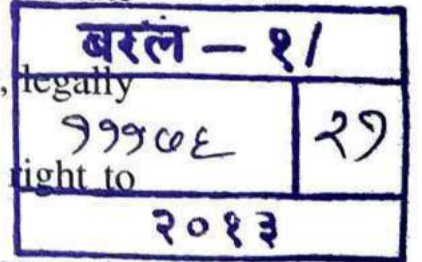 बरलं – १/
, legally
१११७६ २१
right to
२०१३